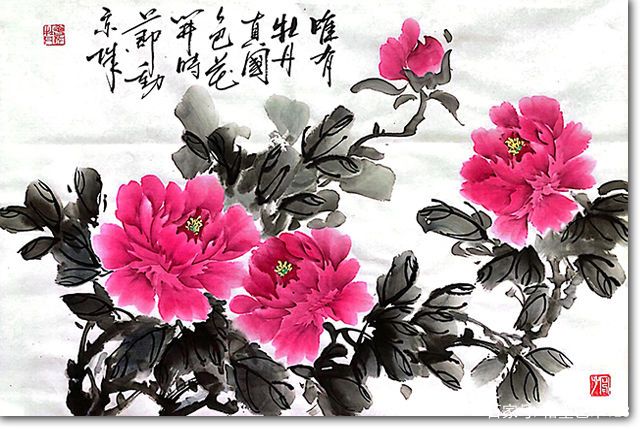 唯有
牡丹
真國
色花
開時
節動
京城